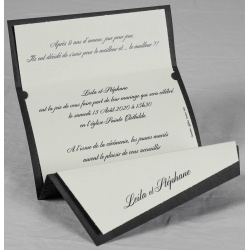 Après 15 ans d'amour, jour pour jour,
Ils ont décidé de s'unir pour le meilleur et... le meilleur !!
Leila et Stéphane
ont la joie de vous faire part de leur mariage qui sera célébré
le samedi 15 Août 2020 à 15h30
en l'église Sainte Clotilde
A l'issue de la cérémonie, les jeunes mariés
auront le plaisir de vous accueillir
Leila et Stéphane